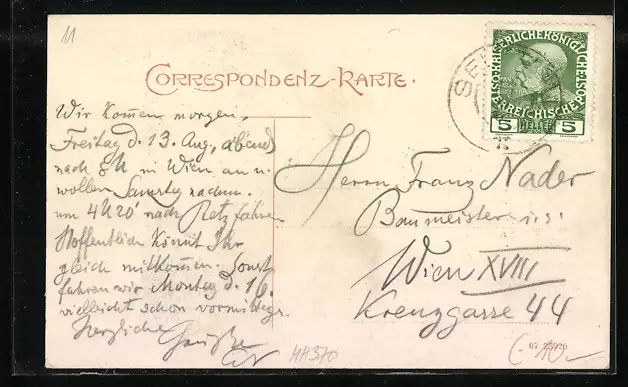 11
CORRESPONDENZ-KARTE.
KAISERLICHE KÖNIGLICHE ÖSTERREICHISCHE POST
5 HELLER 5
Wir kom̄en morgen,
Freitag d. 13. Aug, abends
nach 8 U in Wien an u.
wollen Samstg nachm.
um 4 U 20' nach Retz fahren
Hoffentlich könnt Ihr
gleich mitkom̄en. Sonst
fahren wir Montag d. 16.
vielleicht schon vormittags.
Herzliche
Herrn Franz Nader
Baumeister
Wien XVIII
Krenzgasse 44
07 23920
HH370
10.-